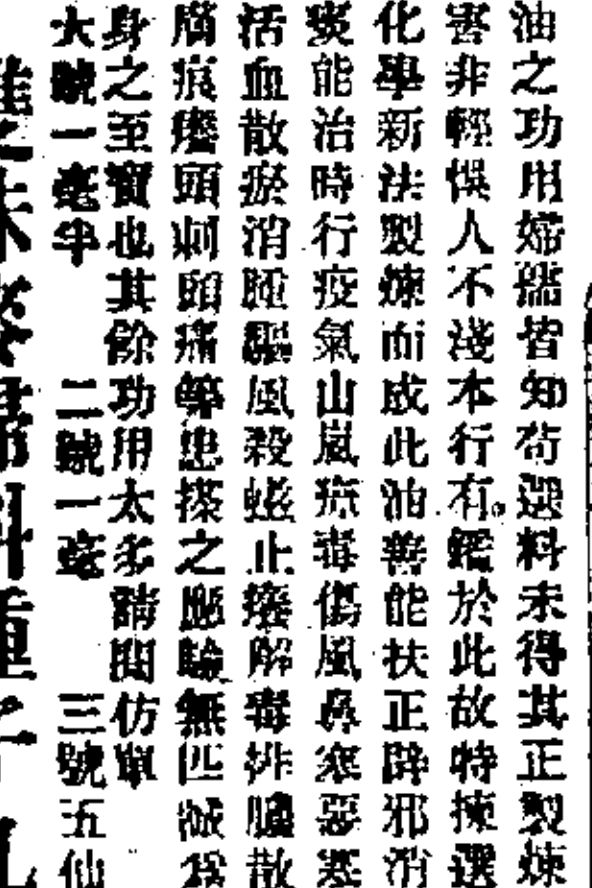 油之功用婦孺皆知苟選料未得其正製煉
害非輕悞人不淺本行有鑑於此故特揀選
化學新法製煉而成此油善能扶正辟邪消
痰能治時行疫氣山嵐瘴毒傷風鼻塞惡寒
活血散瘀消腫驅風殺蟲止癢解毒排膿散
痕癢頭刺頭痛等患搽之應驗無匹誠為
身之至寶也其餘功用太多請閱仿單
大號一毫半 二號一毫 三號五仙